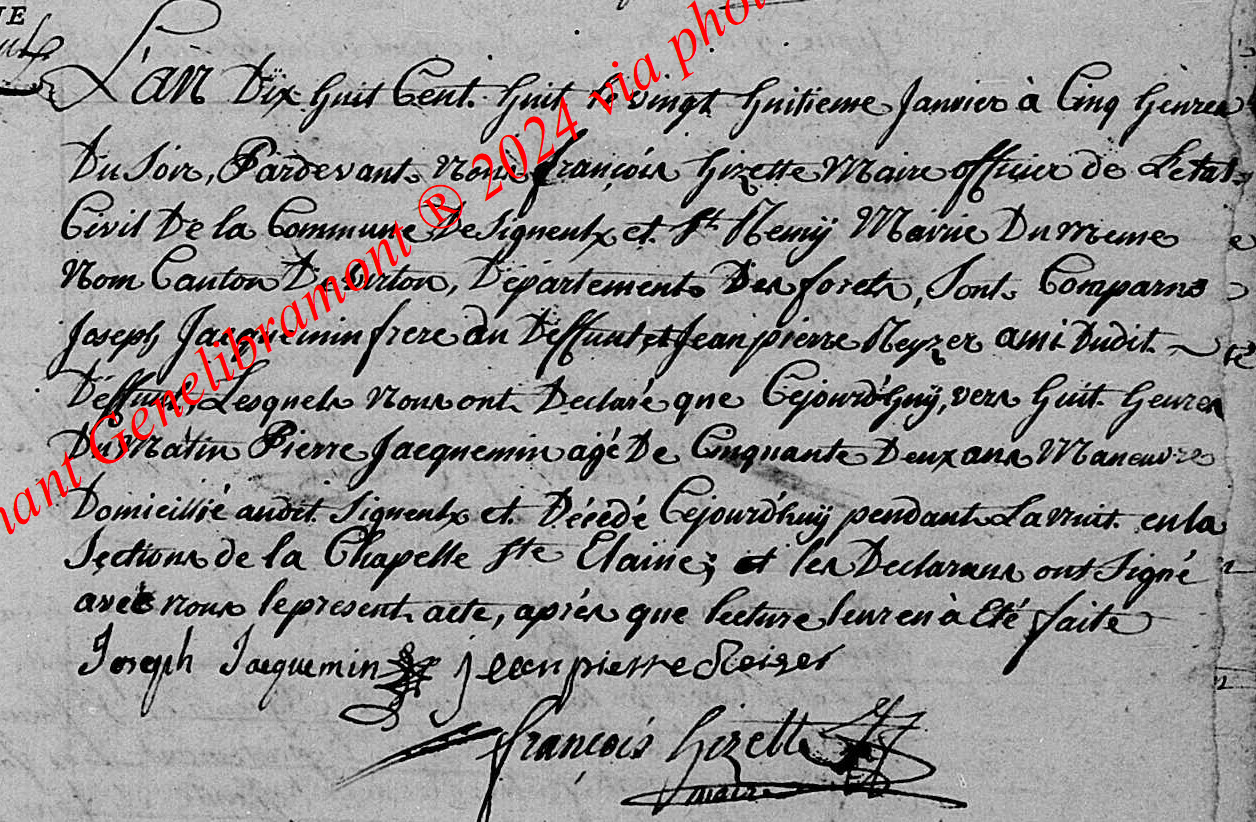 L'an Dix huit Cent huit le vingt huitieme Janvier à Cinq heures
Du Soir, Pardevant Nous françois Gizette Maire officier de L'etat
Civil De la Commune De Signeulx et St Remÿ Mairie Du meme
Nom Canton De Virton, Département Des forets, Sont Comparus
Joseph Jacquemin frere du Deffunt et Jean pierre ami Dudit
Déffunt, Lesquels Nous ont Declaré que Cejourd'huÿ, vers huit heures
Du Matin Pierre Jacquemin agé De Cinquante Deux ans Maneuvre
Domicillié audit Signeulx et Décédé Cejourd'huÿ pendant La nuit en la
Sections de la Chapelle Ste ; et les Declarans ont Signé
avec nous le present acte, après que lecture leur en à Eté faite
Joseph Jacquemin jean pierre
françois Gizette
maire
nant Genelibramont ® 2024 via phot